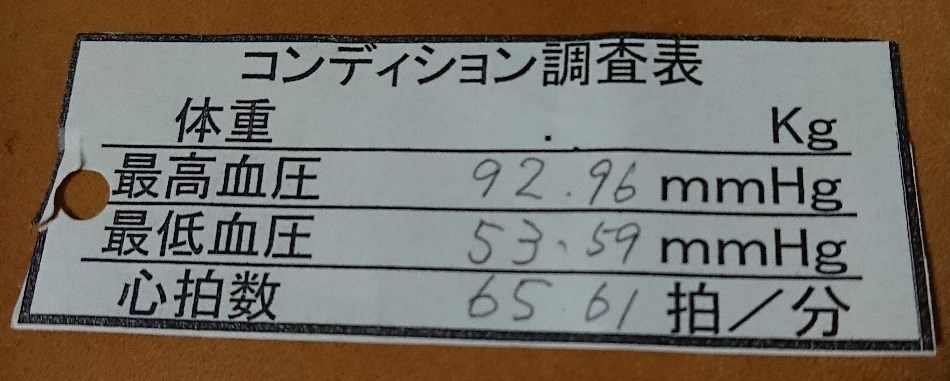 コンディション調査表
体重 . Kg
最高血圧 92.96 mmHg
最低血圧 53.59 mmHg
心拍数 65.61 拍／分